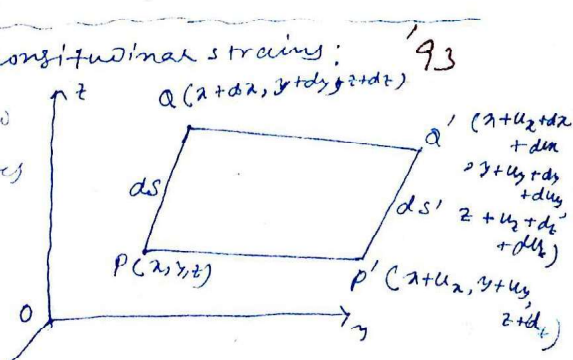 ongitudinal strains: '93
z
Q (x+dx, y+dy, z+dz)
Q' (x+u_x+dx
+du_x
, y+u_y+dy
+du_y
z+u_z+dz
+du_z)
es
ds
ds'
P(x,y,z)
P' (x+u_x, y+u_y,
z+d_z)
O
y